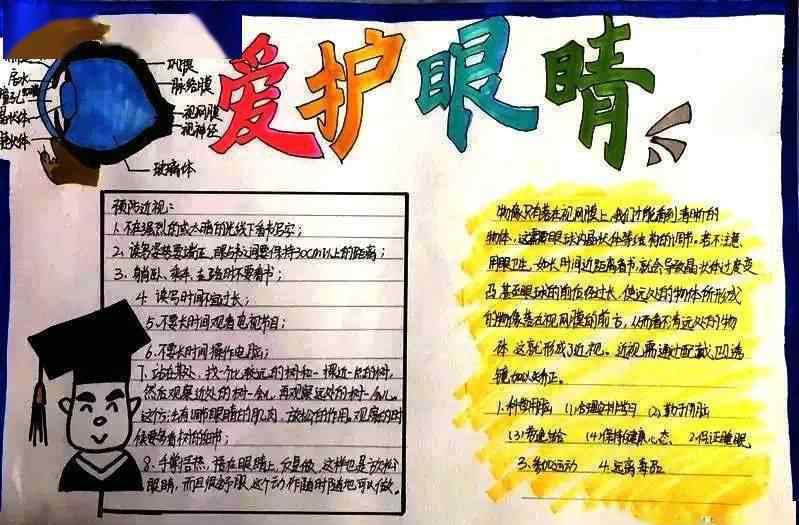 爱护眼睛
巩膜
脉络膜
视网膜
视神经
玻璃体
房水
瞳孔
晶状体
睫状体
预防近视：
1、不在强烈的或太暗的光线下看书写字；
2、读写姿势要端正，眼与书之间要保持30cm以上的距离；
3、躺卧、乘车、走路时不要看书；
4、读写时间不宜过长；
5、不要长时间观看电视节目；
6、不要长时间操作电脑；
7、站在某处，找一个比较远的树和一棵近一点的树，
然后观察近处的树一会儿，再观察远处的树一会儿。
这个方法有调节眼睛的肌肉，放松的作用。观察的时
候要多看树的细节；
8、手掌搓热，捂在眼睛上，反复做，这样也是放松
眼睛，而且很舒服这个动作随时随地可以做。
物像只有落在视网膜上，我们才能看到清晰的
物体，这需要眼球内晶状体等结构的调节。若不注意
用眼卫生，如长时间近距离看书，就会导致晶状体过度变
凸甚至眼球的前后径过长，使远处的物体所形成
的物像落在视网膜的前方，从而看不清远处的物
体这就形成了近视。近视需通过配戴凹透
镜加以矫正。
1.科学用脑 (1)合理安排学习 (2)勤于用脑
(3) (4)保持健康心态、 2.保证睡眠
3.参加运动 4.远离毒品